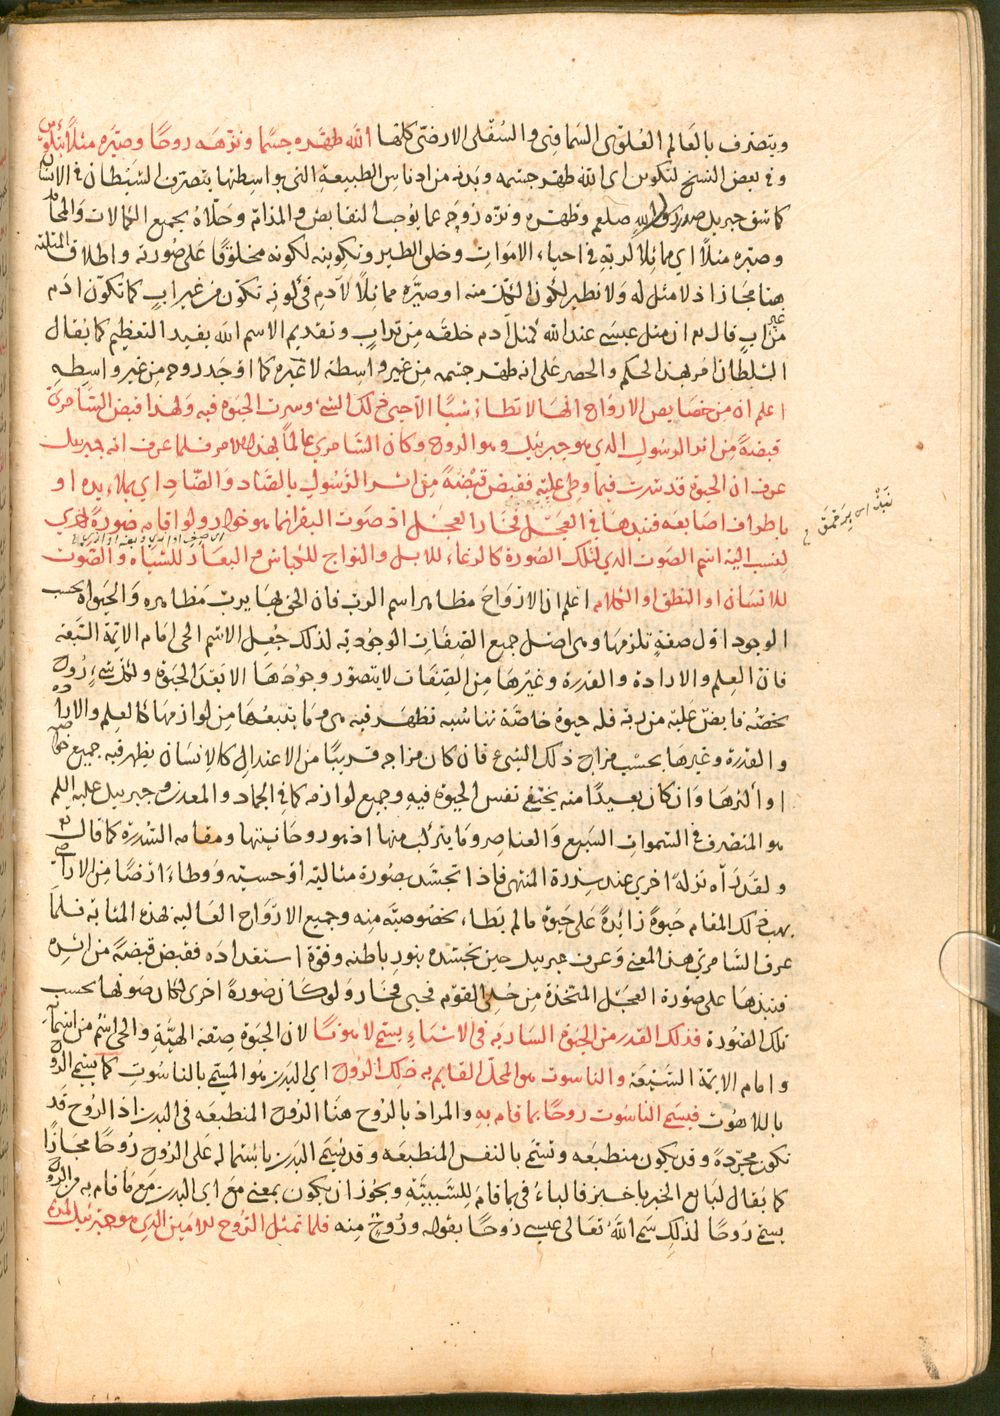 ويتصرف بالعالم العلوي السماوي والسفلي الارضي كلها الله طهره جسما ونزهه روحا وصيره مثلا بتكوين
وفي بعض النسخ لتكوين اي الله طهر جسمه وبدنه من ادناس الطبيعة التي بواسطتها يتصرف الشيطان في الانسان
كما شق جبريل صدر رسول الله صلعم وطهره ونزه روحه عما يوجب النقايص والمذام وحلاه بجميع الكمالات والمحامد
وصيره مثلا اي مماثلا لربه في احياء الاموات وخلق الطير وتكوينه لكونه مخلوقا على صورته واطلاق المثلية
هنا مجاز اذ لا مثل له ولا نظير لكون الكل منه او صيره مماثلا لآدم في كونه تكون من غير اب كما تكون آدم
من غير اب قال تع ان مثل عيسى عند الله كمثل آدم خلقه من تراب وتقديم الاسم الله يفيد التعظيم كما يقال
السلطان امر بهذا الحكم والحصر على انه طهر جسمه من غير واسطة لا غيره كما اوجد روحه من غير واسطة
اعلم ان من خصايص الارواح انها لا تطاء شيئا الا حيي ذلك الشيء وسرت الحيوة فيه ولهذا قبض السامري
قبضة من اثر الرسول الذي هو جبرئيل وهو الروح وكان السامري عالما بهذا الامر فلما عرف انه جبرئيل
عرف ان الحيوة قد سرت فيما وطئ عليه فقبض قبضة من اثر الرسول بالضاد والصاد اي بملاء يده او
باطراف اصابعه فنبذها في العجل فخار العجل اذ صوت البقر انما هو خوار ولو اقامه صورة اخرى
لنسب اليه اسم الصوت الذي لتلك الصورة كالرغاء للابل والثواج للكباش واليعار للشياه والصوت
للانسان او النطق او الكلام اعلم ان الارواح مظاهر اسم الرب فان الحق بها يرب مظاهره والحيوة بحسب
الوجود اول صفة تلزمها وهي اصل جميع الصفات الوجودية لذلك جعل الاسم الحي امام الايمة السبعة
فان العلم والارادة والقدرة وغيرها من الصفات لا يتصور وجودها الا بعد الحيوة ولكل شيء روح
يخصه فايض عليه من ربه فله حيوة خاصة تناسبه تظهر فيه هي وما يتبعها من لوازمها كالعلم والارادة
والقدرة وغيرها بحسب مزاج ذلك الشيء فان كان مزاجه قريبا من الاعتدال كالانسان يظهر فيه جميع خواصه
او اكثرها وان كان بعيدا منه يختفي نفس الحيوة فيه وجميع لوازمه كما في الجماد والمعدن وجبرئيل عليه السلم
هو المتصرف في السموات السبع والعناصر وما يتركب منها اذ هو روحانيتها ومقامه السدرة كما قال تع
ولقد رآه نزلة اخرى عند سدرة المنتهى فاذا تجسد بصورة مثالية او حسية ووطاء ارضا من الاراضي
يهب ذلك المقام حيوة زائدة على حيوة ما لم يطاء بخصوصية منه وجميع الارواح العالية لهذه المثابة فلما
عرف السامري هذا المعنى وعرف جبرئيل حين تجسده بنور باطنه وقوة استعداده فقبض قبضة من اثره
فنبذها على صورة العجل المتخذة من حلي القوم فحيي فخار ولو كان صورة اخرى لكان صوتها بحسب
تلك الصورة فذلك القدر من الحيوة السارية في الاشياء يسمى لاهوتا لان الحيوة صفة الهية والحي اسم من اسمائه
وامام الايمة السبعة والناسوت هو المحل القايم به ذلك الروح اي البدن هو المسمى بالناسوت كما يسمى الروح
باللاهوت فيسمى الناسوت روحا بما قام به والمراد بالروح هنا الروح المنطبعة في البدن اذ الروح قد
تكون مجردة وقد يكون منطبعة وتسمى بالنفس المنطبعة وقد يسمى البدن باشتماله على الروح روحا مجازا
كما يقال لبايع الخبز يا خبز فالباء في بما قام للسببية ويجوز ان يكون بمعنى مع اي البدن مع ما قام به من الروح
يسمى روحا لذلك سمى الله تعالى عيسى روحا بقوله وروح منه فلما تمثل الروح الامين الذي هو جبرئيل لمريم